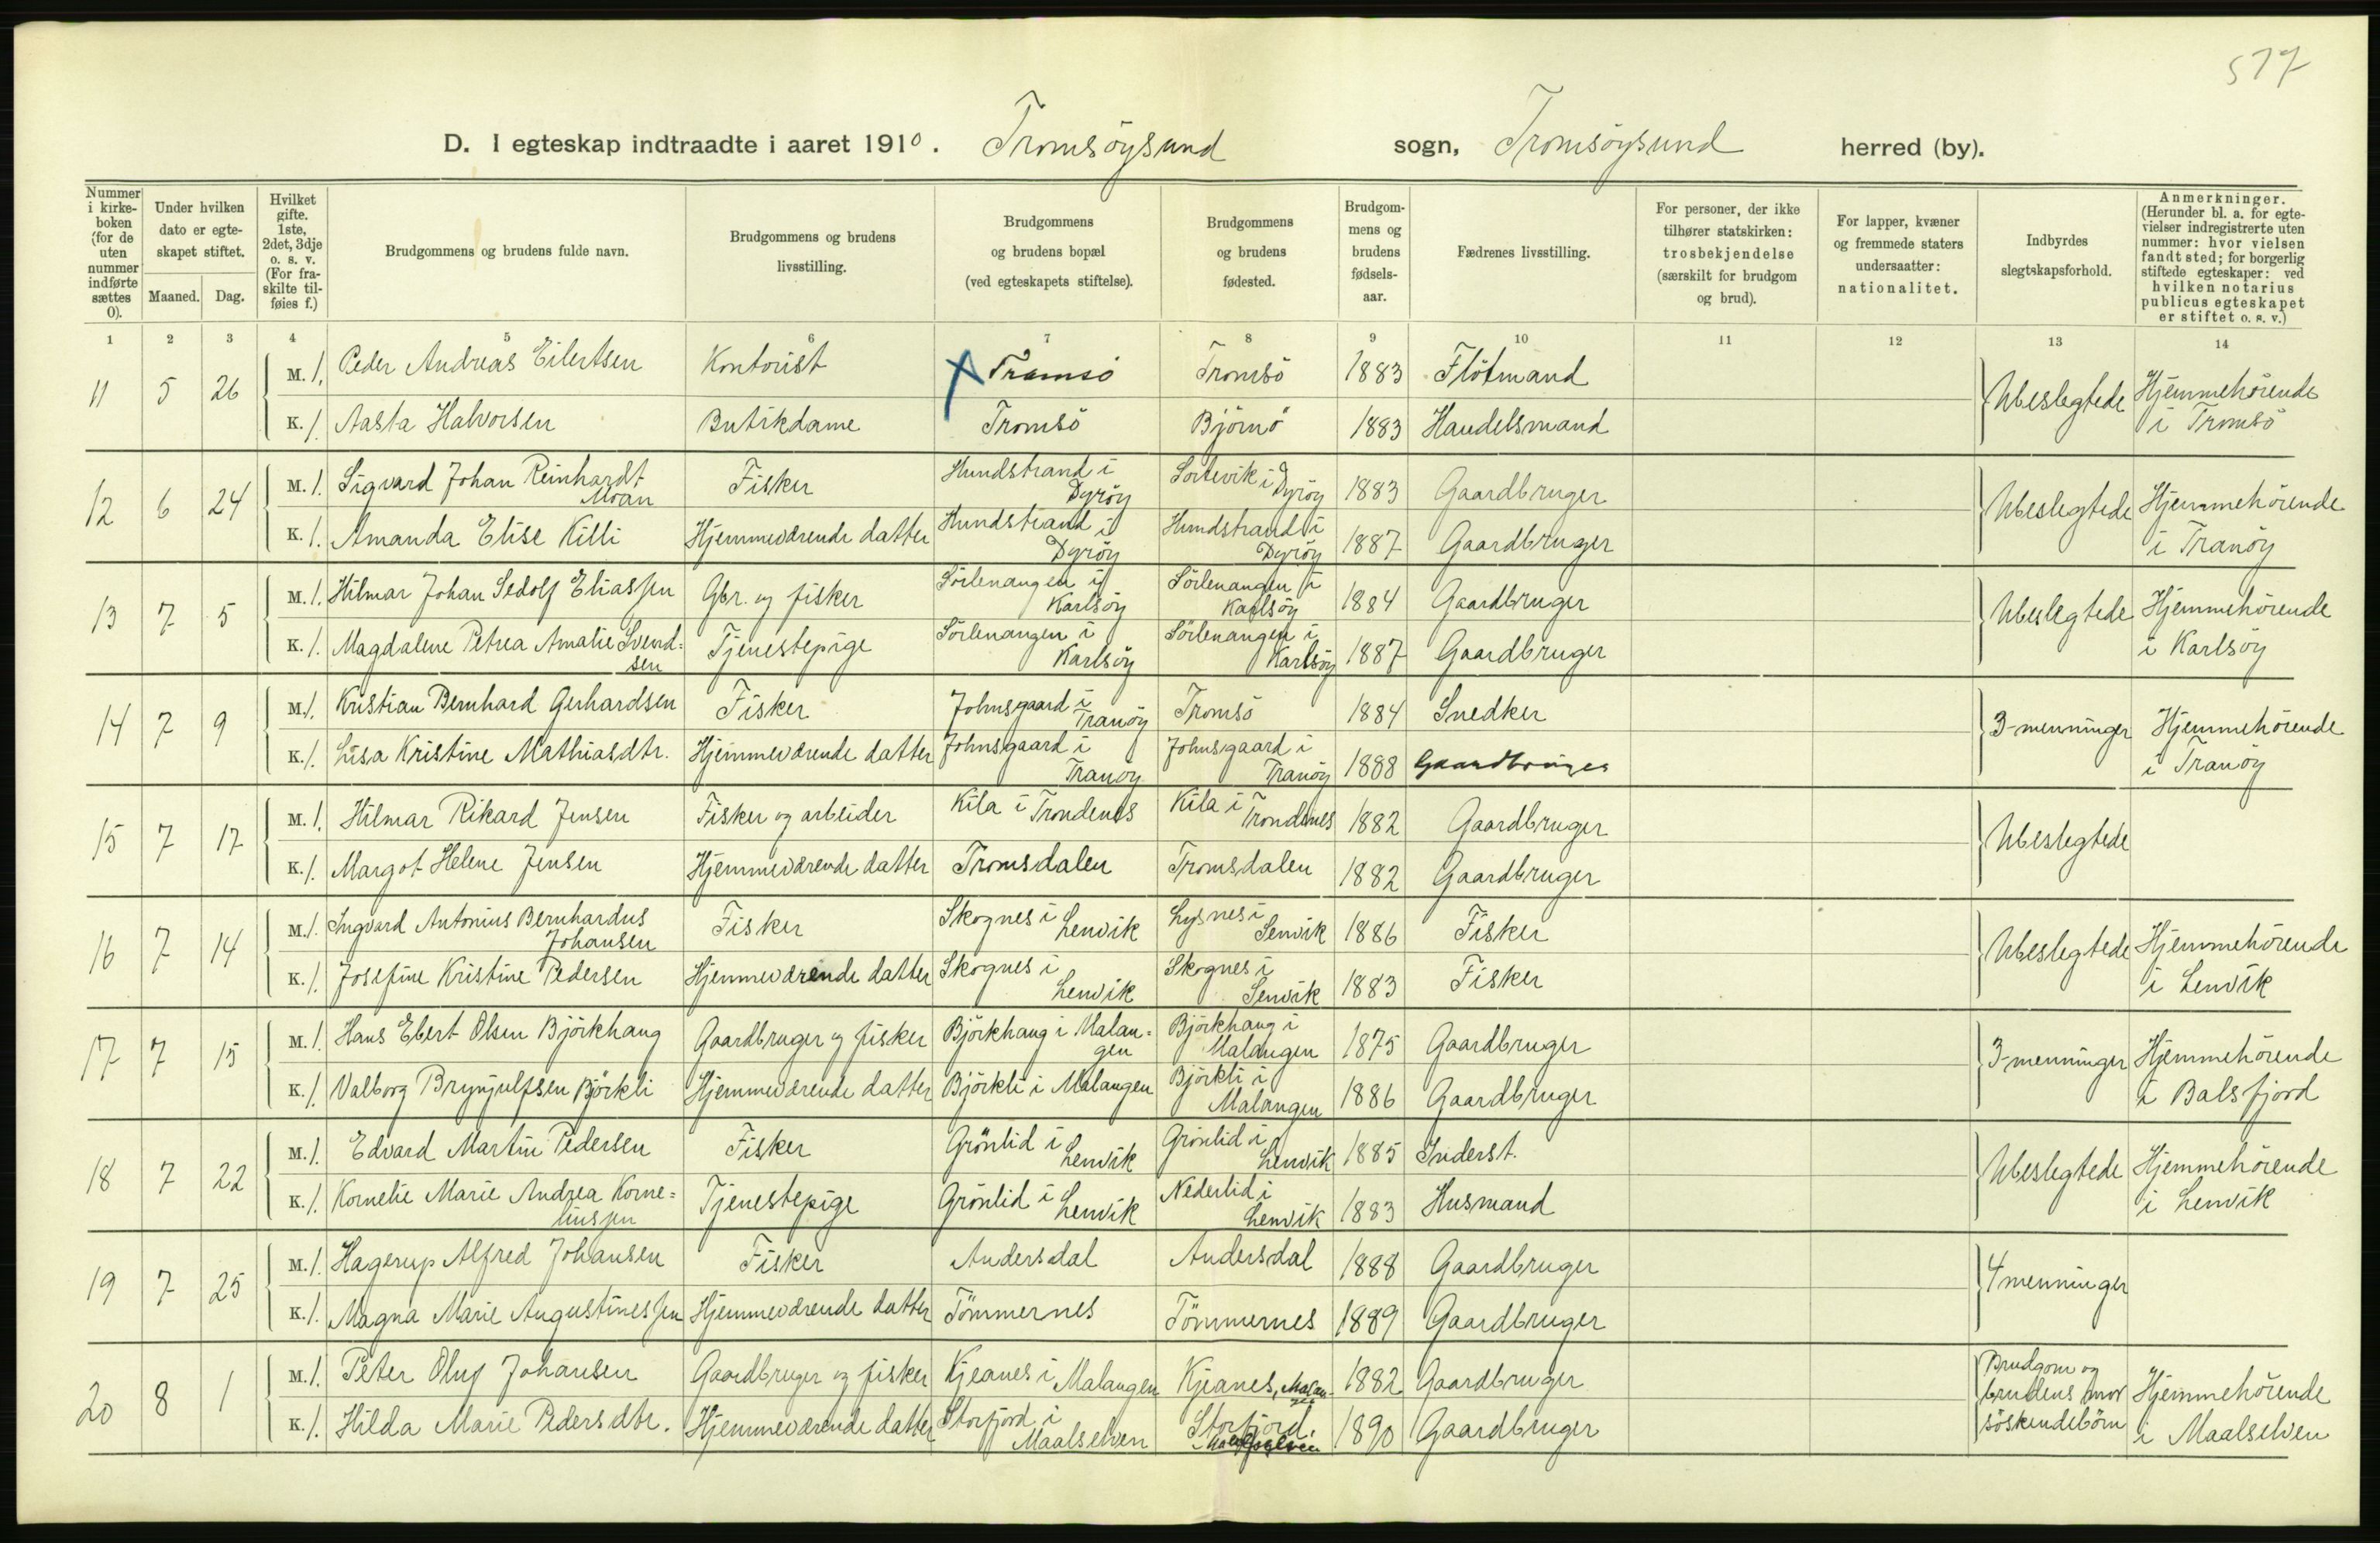 517
D. I egteskap indtraadte i aaret 1910. Tromsøysund sogn, Tromsøysund herred (by).
Nummer i kirkeboken (for de uten nummer indførte sættes 0).
Under hvilken dato er egteskapet stiftet.
Maaned. Dag.
Hvilket gifte. 1ste, 2det, 3dje o. s. v. (For fraskilte tilføies f.)
Brudgommens og brudens fulde navn.
Brudgommens og brudens livsstilling.
Brudgommens og brudens bopæl (ved egteskapets stiftelse).
Brudgommens og brudens fødested.
Brudgommens og brudens fødselsaar.
Fædrenes livsstilling.
For personer, der ikke tilhører statskirken: trosbekjendelse (særskilt for brudgom og brud).
For lapper, kvæner og fremmede staters undersaatter: nationalitet.
Indbyrdes slegtskapsforhold.
Anmerkninger. (Herunder bl. a. for egtevielser indregistrerte uten nummer: hvor vielsen fandt sted; for borgerlig stiftede egteskaper: ved hvilken notarius publicus egteskapet er stiftet o. s. v.)
1 2 3 4 5 6 7 8 9 10 11 12 13 14
11 5 26 M. 1. Peder Andreas Eilertsen Kontorist Tromsö Tromsö 1883 Flötmand Ubeslegtede Hjemmehörende i Tromsö
K. 1. Aasta Halvorsen Butikdame Tromsö Björnö 1883 Handelsmand
12 6 24 M. 1. Sigvard Johan Reinhardt Moan Fisker Hundstrand i Dyröy Sortevik i Dyröy 1883 Gaardbruger Ubeslegtede Hjemmehörende i Tranöy
K. 1. Amanda Elise Killi Hjemmeværende datter Hundstrand i Dyröy Hundstrand i Dyröy 1887 Gaardbruger
13 7 5 M. 1. Hilmar Johan Sedolf Eliassen Gbr. og fisker Sörlenangen i Karlsöy Sörlenangen i Karlsöy 1884 Gaardbruger Ubeslegtede Hjemmehörende i Karlsöy
K. 1. Magdalene Petrea Amalie Svendsen Tjenestepige Sörlenangen i Karlsöy Sörlenangen i Karlsöy 1887 Gaardbruger
14 7 9 M. 1. Kristian Bernhard Gerhardsen Fisker Johnsgaard i Tranöy Tromsö 1884 Snedker 3-menninger Hjemmehörende i Tranöy
K. 1. Lisa Kristine Mathiasdtr. Hjemmeværende datter Johnsgaard i Tranöy Johnsgaard i Tranöy 1888 Gaardbruger
15 7 17 M. 1. Hilmar Rikard Jensen Fisker og arbeider Kila i Trondenes Kila i Trondenes 1882 Gaardbruger Ubeslegtede
K. 1. Margot Helene Jensen Hjemmeværende datter Tromsdalen Tromsdalen 1882 Gaardbruger
16 7 14 M. 1. Ingvard Antonius Bernhardus Johansen Fisker Skognes i Lenvik Lysnes i Lenvik 1886 Fisker Ubeslegtede Hjemmehörende i Lenvik
K. 1. Josefine Kristine Pedersen Hjemmeværende datter Skognes i Lenvik Skognes i Lenvik 1883 Fisker
17 7 15 M. 1. Hans Ebert Olsen Björkhaug Gaardbruger og fisker Björkhaug i Malangen Björkhaug i Malangen 1875 Gaardbruger 3-menninger Hjemmehörende i Balsfjord
K. 1. Valborg Brynjulfsen Björkli Hjemmeværende datter Björkli i Malangen Björkli i Malangen 1886 Gaardbruger
18 7 22 M. 1. Edvard Martin Pedersen Fisker Grönlid i Lenvik Grönlid i Lenvik 1885 Inderst. Ubeslegtede Hjemmehörende i Lenvik
K. 1. Kornelie Marie Andrea Korneliussen Tjenestepige Grönlid i Lenvik Nederlid i Lenvik 1883 Husmand
19 7 25 M. 1. Hagerup Alfred Johansen Fisker Andersdal Andersdal 1888 Gaardbruger 4 menninger
K. 1. Magna Marie Augustinessen Hjemmeværende datter Tömmernes Tömmernes 1889 Gaardbruger
20 8 1 M. 1. Peter Oluf Johansen Gaardbruger og fisker Kjeanes i Malangen Kjeanes, Malangen 1882 Gaardbruger Brudgom og brudens mor söskendebörn Hjemmehörende i Maalselven
K. 1. Hilda Marie Pedersdtr. Hjemmeværende datter Storfjord i Maalselven Storfjord. 1890 Gaardbruger